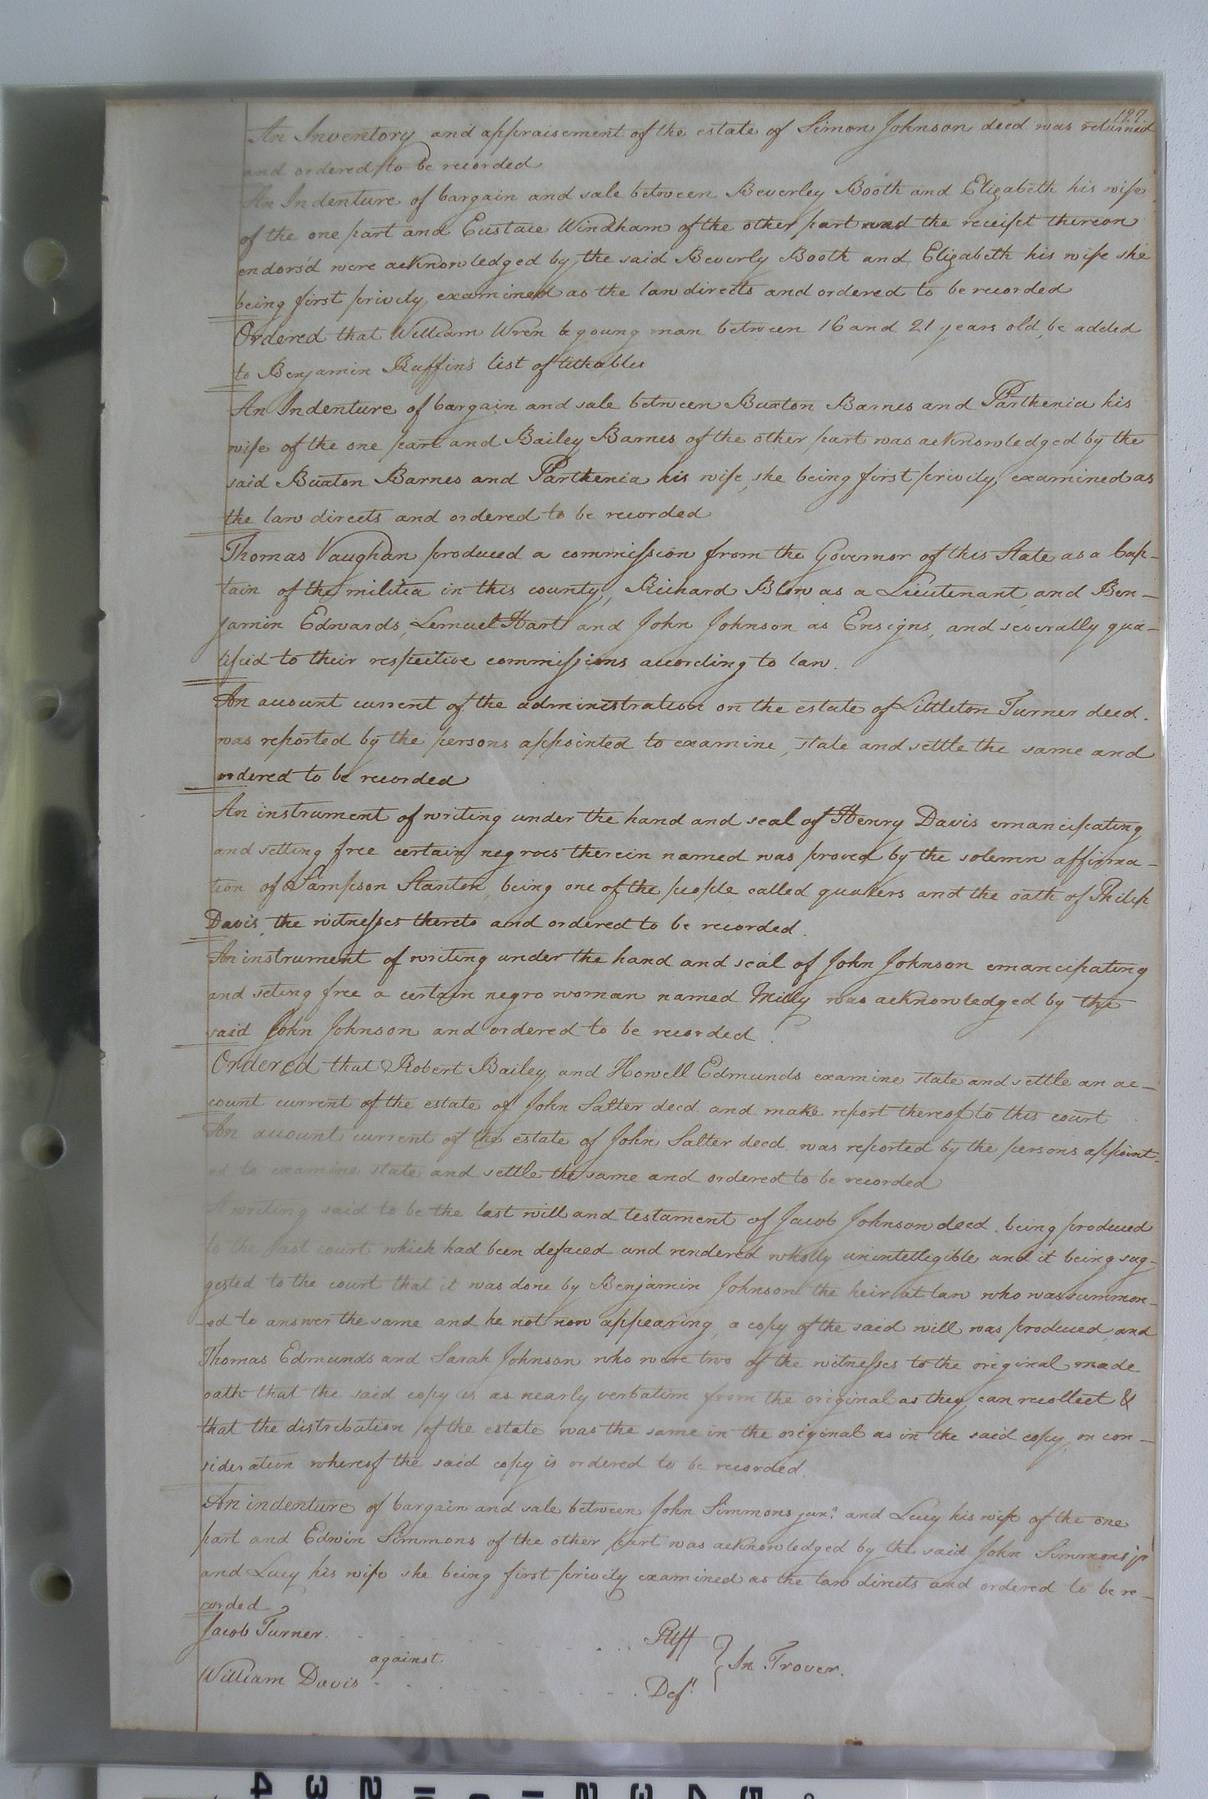 An Inventory and appraisement of the estate of Simon Johnson deed was returned
and ordered to be recorded
An Indenture of bargain and sale between Beverley Booth and Elizabeth his wife
of the one part and Eustace Windham of the other part and the receipt thereon
endors'd were acknowledged by the said Beverly Booth and Elizabeth his wife she
being first privily examined as the law directs and ordered to be recorded
Ordered that William Wren a young man between 16 and 21 years old, be added
to Benjamin Ruffin's list of tithables
An Indenture of bargain and sale between Buxton Barnes and Parthenia his
wife of the one part and Bailey Barnes of the other part was acknowledged by the
said Buxton Barnes and Parthenia his wife, she being first privily examined as
the law directs and ordered to be recorded
Thomas Vaughan produced a commission from the Governor of this State as a Cap-
tain of the militia in this county, Richard Blow as a Lieutenant, and Ben-
jamin Edwards, Lemuel Hart and John Johnson as Ensigns, and severally qua-
lified to their respective commissions according to law.
An account current of the administration on the estate of Littleton Turner deed.
was reported by the persons appointed to examine, state and settle the same and
ordered to be recorded
An instrument of writing under the hand and seal of Henry Davis emancipating
and setting free certain negroes therein named was proved by the solemn affirma-
tion of Sampson Stanton, being one of the people called quakers and the oath of Philip
Davis, the witnesses thereto and ordered to be recorded.
An instrument of writing under the hand and seal of John Johnson emancipating
and seting free a certain negro woman named Milly was acknowledged by the
said John Johnson and ordered to be recorded.
Ordered that Robert Bailey and Howell Edmunds examine state and settle an ac-
count current of the estate of John Salter deed and make report thereof to this court
An account current of the estate of John Salter deed. was reported by the persons appoint-
ed to examine state and settle the same and ordered to be recorded
A writing said to be the last will and testament of Jacob Johnson deed. being produced
to the last court which had been defaced and rendered wholly unintellegible and it being sug-
gested to the court that it was done by Benjamin Johnson the heir at law who was summon-
ed to answer the same and he not now appearing, a copy of the said will was produced and
Thomas Edmunds and Sarah Johnson who were two of the witnesses to the original made
oath that the said copy is as nearly verbatim from the original as they can recollect &
that the distribution of the estate was the same in the original as in the said copy, on con-
sideration whereof the said copy is ordered to be recorded.
An indenture of bargain and sale between John Simmons junr. and Lucy his wife of the one
part and Edwin Simmons of the other part was acknowledged by the said John Simmons jr
and Lucy his wife she being first privily examined as the law directs and ordered to be re-
corded
Jacob Turner. Pltff
against } In Trover.
William Davis Deft.